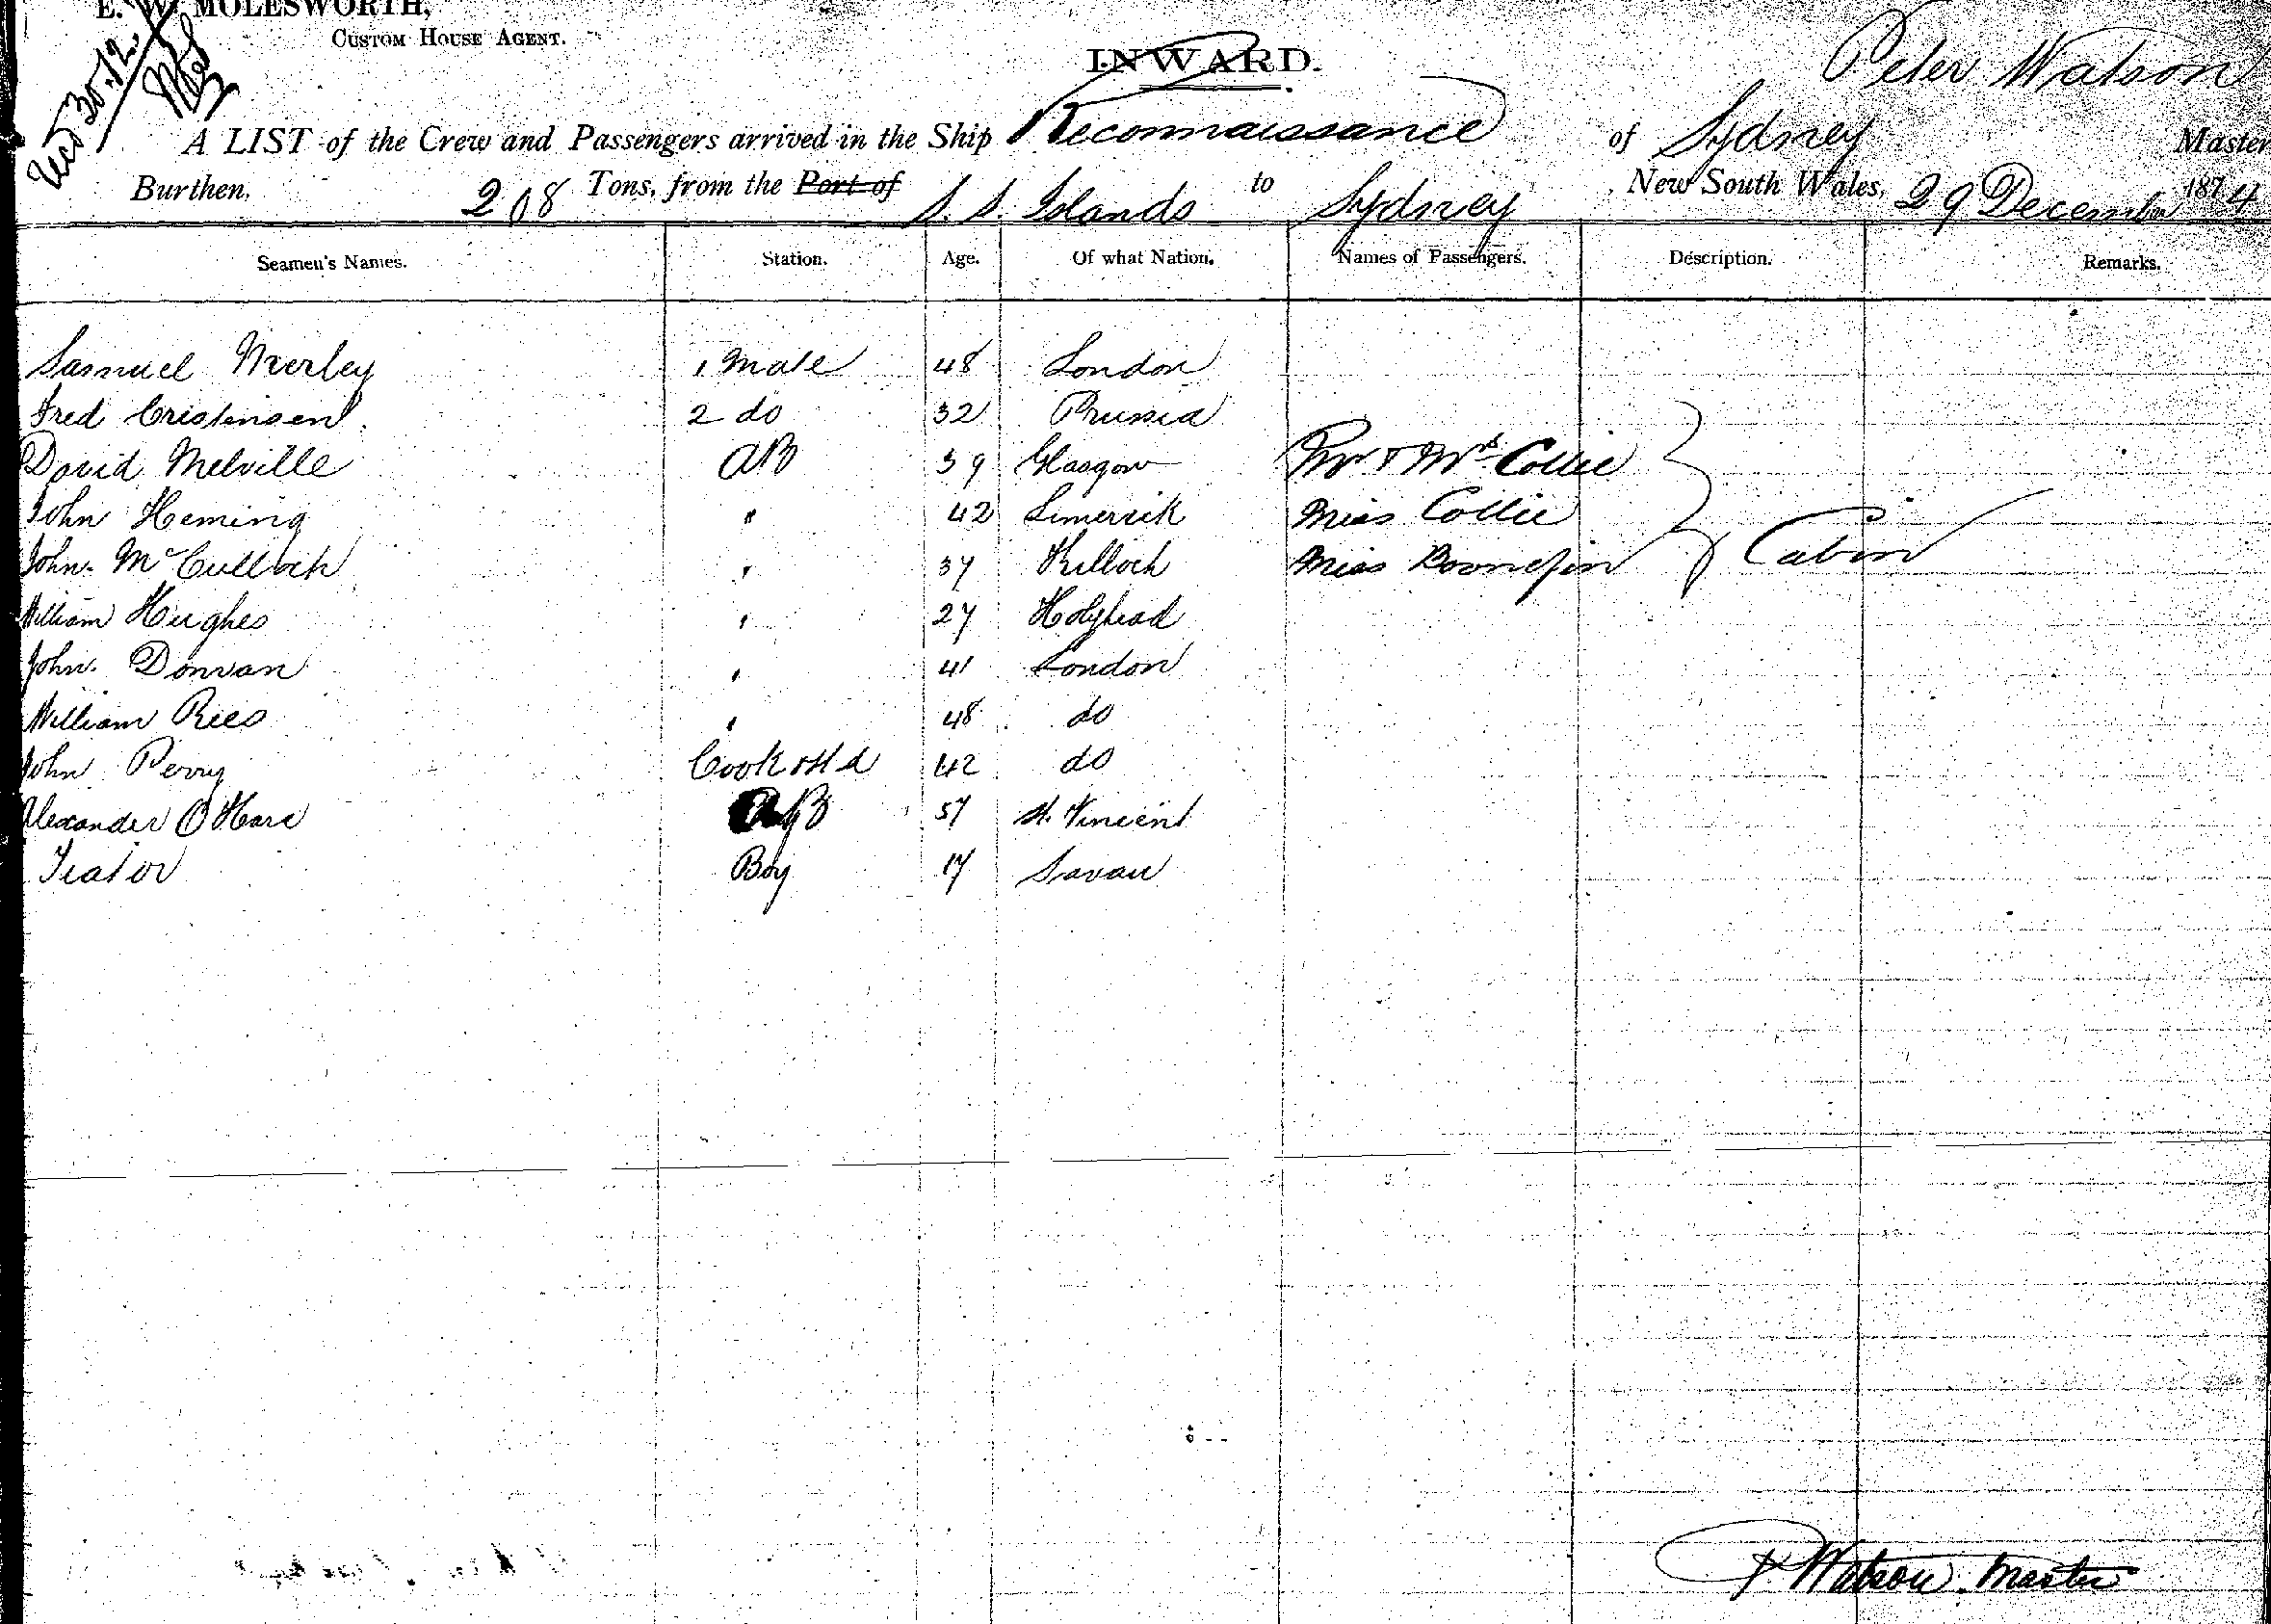 E. W. MOLESWORTH,
CUSTOM HOUSE AGENT.
INWARD.
Peter Watson
A LIST of the Crew and Passengers arrived in the Ship Reconnaissance of Sydney Master
Burthen, 208 Tons, from the Port of S. S. Islands to Sydney New South Wales, 29 December 1874
Seamen's Names. Station. Age. Of what Nation. Names of Passengers. Description. Remarks.
Samuel Merley 1 Mate 48 London
Fred Cristensen 2 do 32 Prussia
David Melville AB 39 Glasgow Mr & Mrs Collie
John Heming " 42 Limerick Miss Collie
John McCulloch " 37 Miss Cabin
William Hughes " 27 Holyhead
John Donvan " 41 London
William Rees " 48 do
John Perry Cook & Std 42 do
Alexander O Hare AB 57 St. Vincent
Boy 17 Savau
P Watson. Master